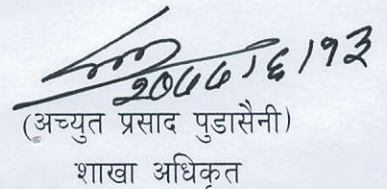 २०७७।६।१३
(अच्युत प्रसाद पुडासैनी)
शाखा अधिकृत